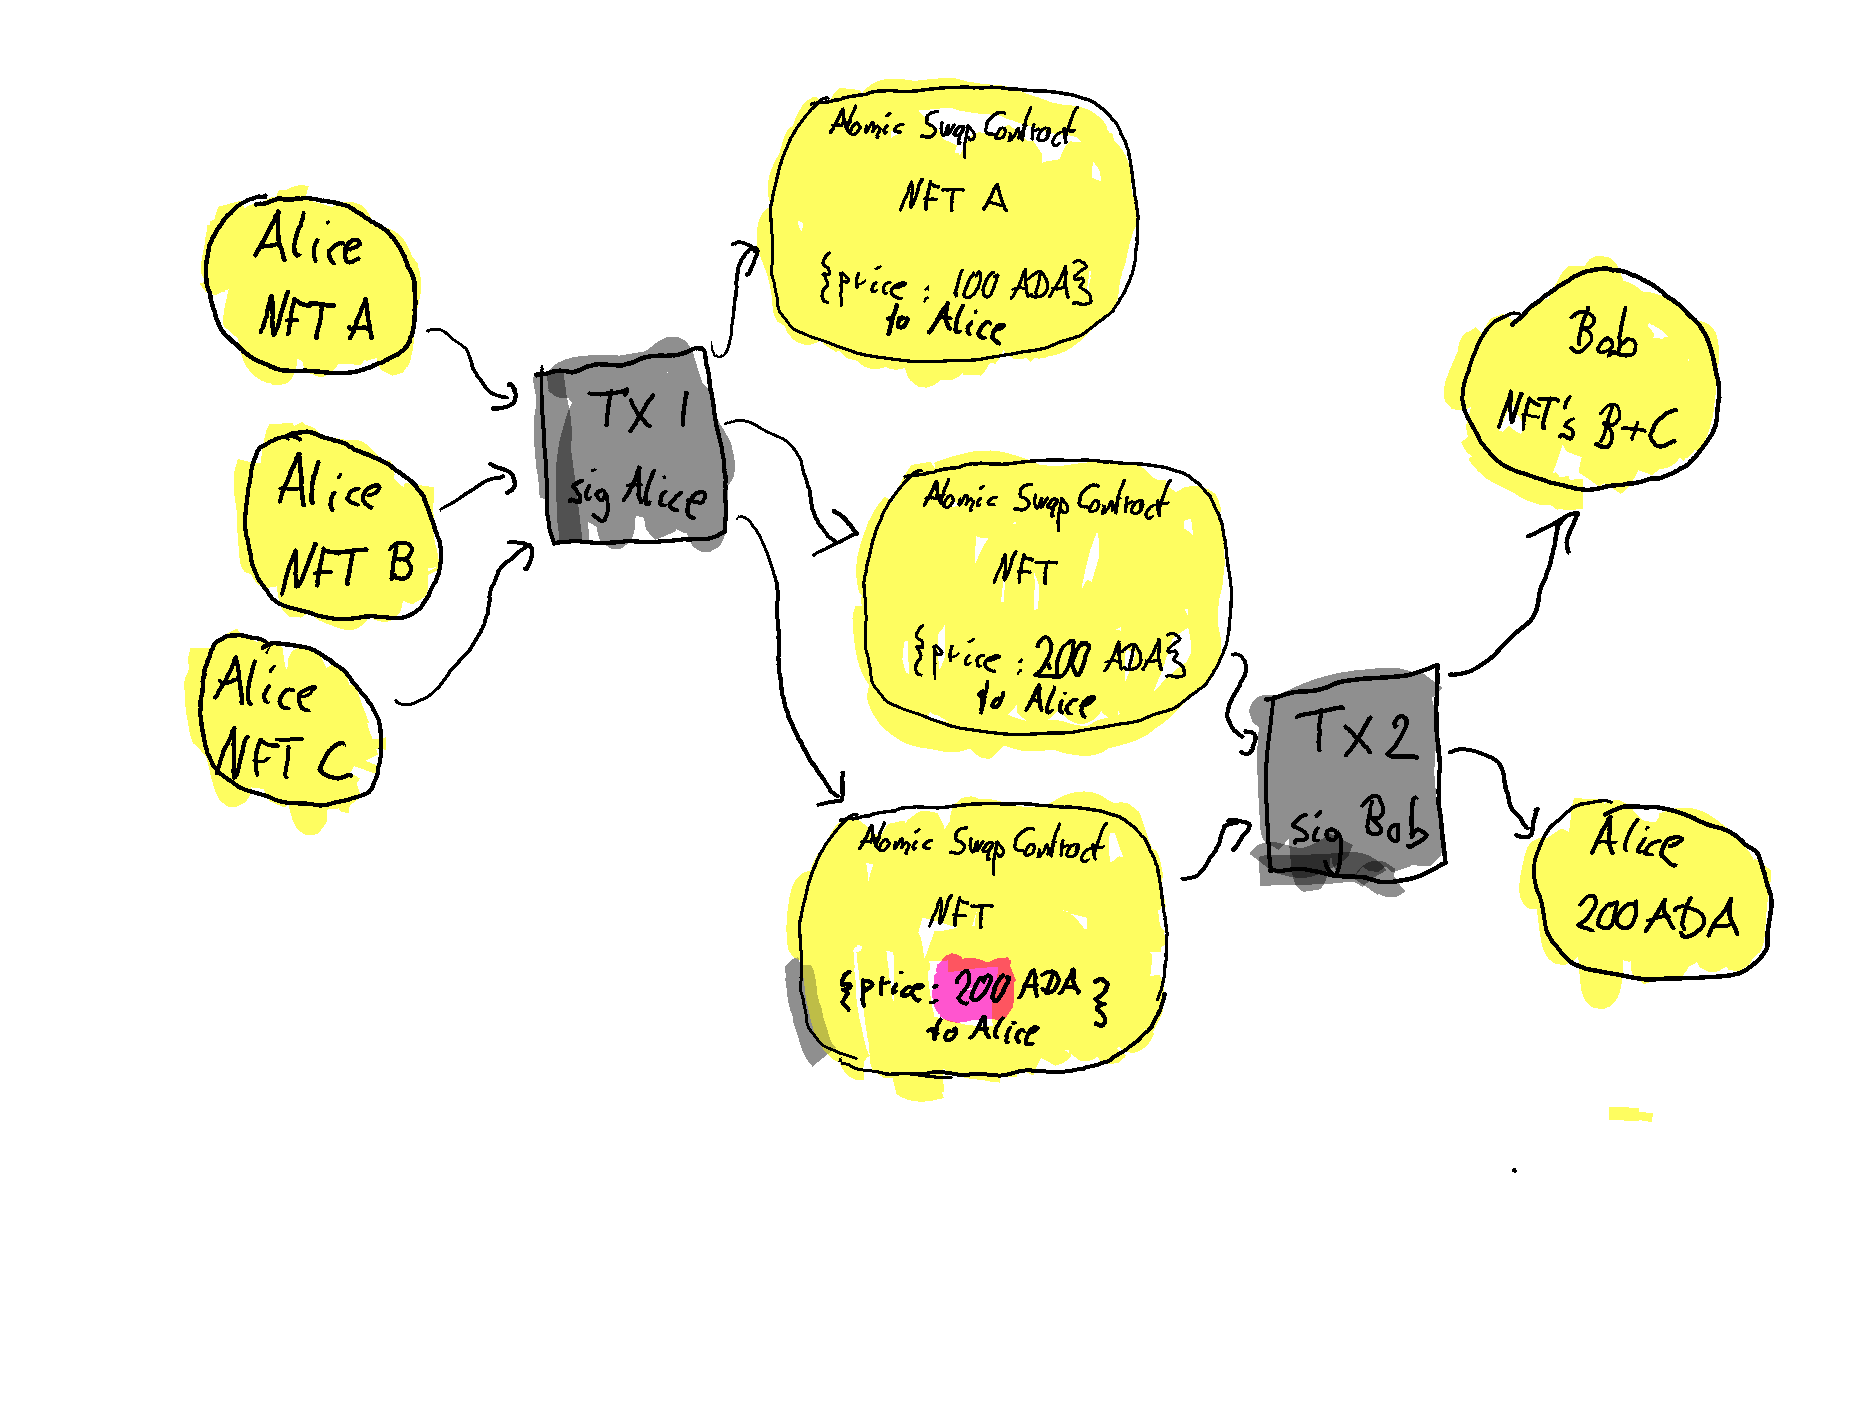 Alice
NFT A
Alice
NFT B
Alice
NFT C
TX 1
sig Alice
Atomic Swap Contract
NFT A
{price : 100 ADA}
to Alice
Atomic Swap Contract
NFT
{price : 200 ADA}
to Alice
Atomic Swap Contract
NFT
{price: 200 ADA}
to Alice
TX2
sig Bob
Bob
NFT's B+C
Alice
200 ADA